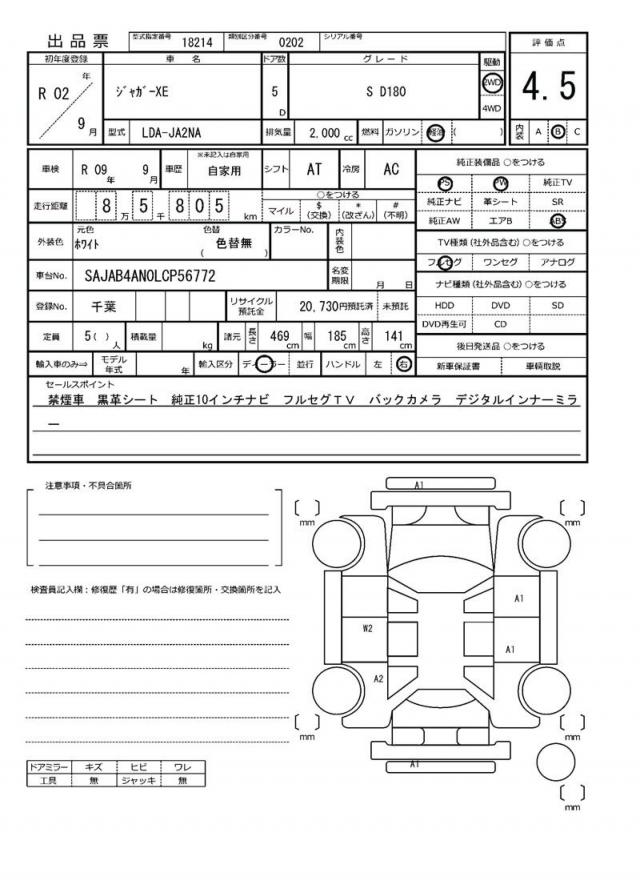 出品票 型式指定番号 18214 類別区分番号 0202 シリアル番号
初年度登録 車名 ドア数 グレード 駆動 評価点
R 02 年 9 月 ジャガーXE 5 D S D180 2WD 4WD 4.5
型式 LDA-JA2NA 排気量 2,000 cc 燃料 ガソリン 軽油 ( ) 内装 A B C
車検 R 09 年 9 月 車歴 ※未記入は自家用 自家用 シフト AT 冷房 AC 純正装備品 ○をつける
PS PW 純正TV
走行距離 8 万 5 千 8 0 5 km ○をつける マイル $ (交換) * (改ざん) # (不明)
純正ナビ 革シート SR
純正AW エアB ABS
外装色 元色 ホワイト 色替 ( 色替無 ) カラーNo. 内装色
TV種類 (社外品含む) ○をつける
フルセグ ワンセグ アナログ
車台No. SAJAB4AN0LCP56772 名変期限 月 日
ナビ種類 (社外品含む) ○をつける
登録No. 千葉 リサイクル預託金 20,730円預託済 未預託
HDD DVD SD
DVD再生可 CD
定員 5( ) 人 積載量 kg 諸元 長さ 469 cm 幅 185 cm 高さ 141 cm
後日発送品 ○をつける
輸入車のみ⇒ モデル年式 年 輸入区分 ディーラー 並行 ハンドル 左 右
新車保証書 車輌取説
セールスポイント
禁煙車 黒革シート 純正10インチナビ フルセグTV バックカメラ デジタルインナーミラ
ー
注意事項・不具合箇所
検査員記入欄：修復歴「有」の場合は修復箇所・交換箇所を記入
A1
[ ] mm [ ] mm
A1
W2
A1
A2
[ ] mm [ ] mm
A1
[ ] mm
ドアミラー キズ ヒビ ワレ
工具 無 ジャッキ 無